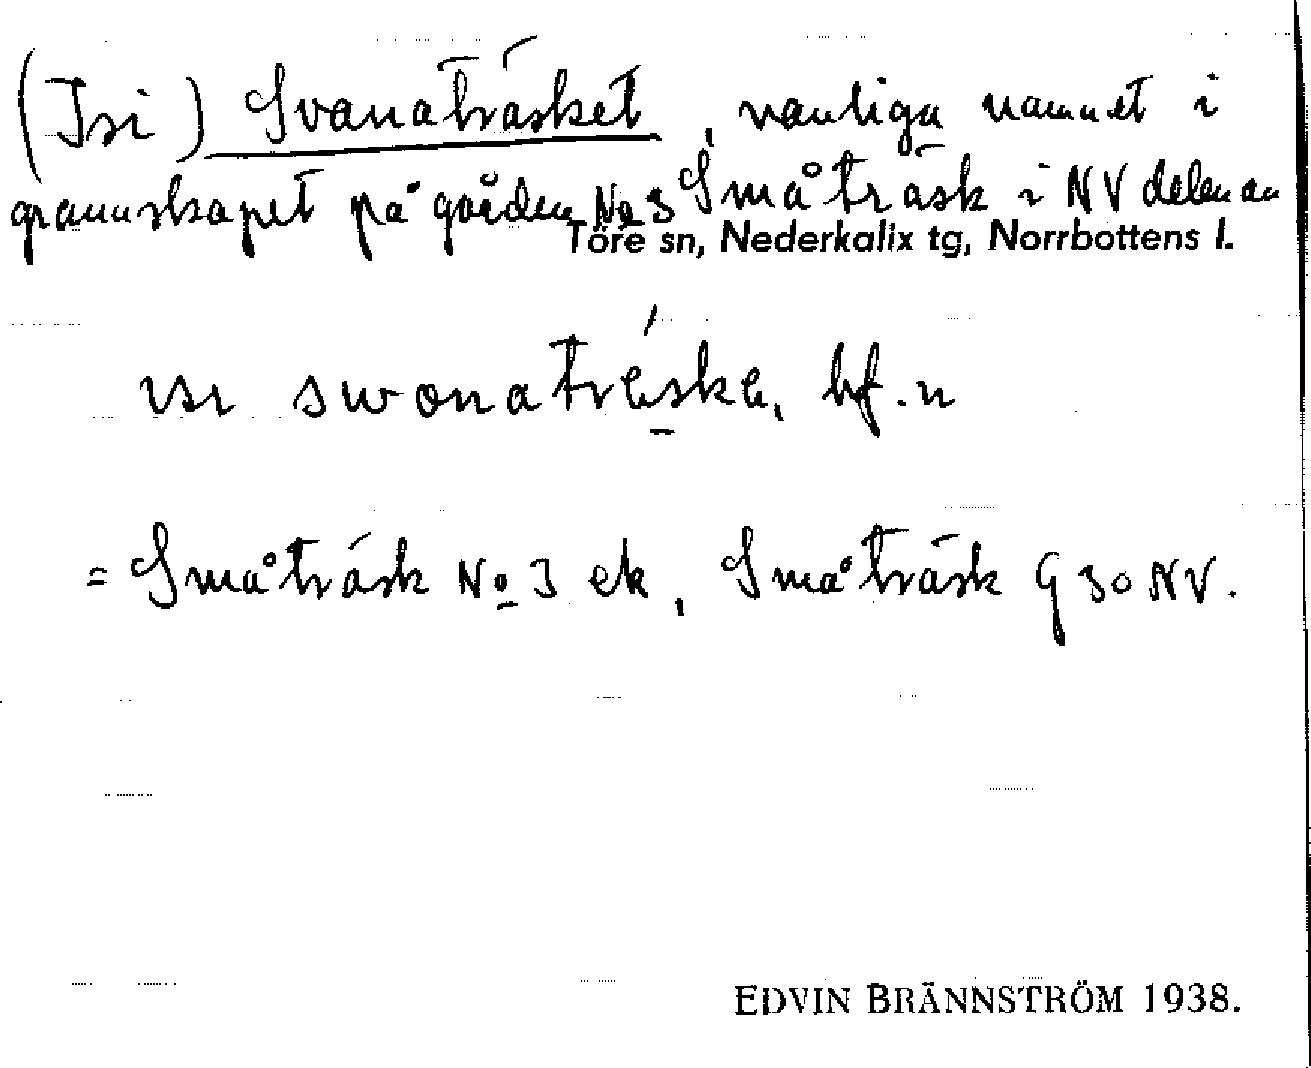 (Isi) Svanaträsket, vanliga namnet i
grannskapet på gården No 3 Småträsk i NV delen av
Töre sn, Nederkalix tg, Norrbottens l.
swonatréske, bf. n
= Småträsk No 3 ek, Småträsk G 30 NV.
EDVIN BRÄNNSTRÖM 1938.